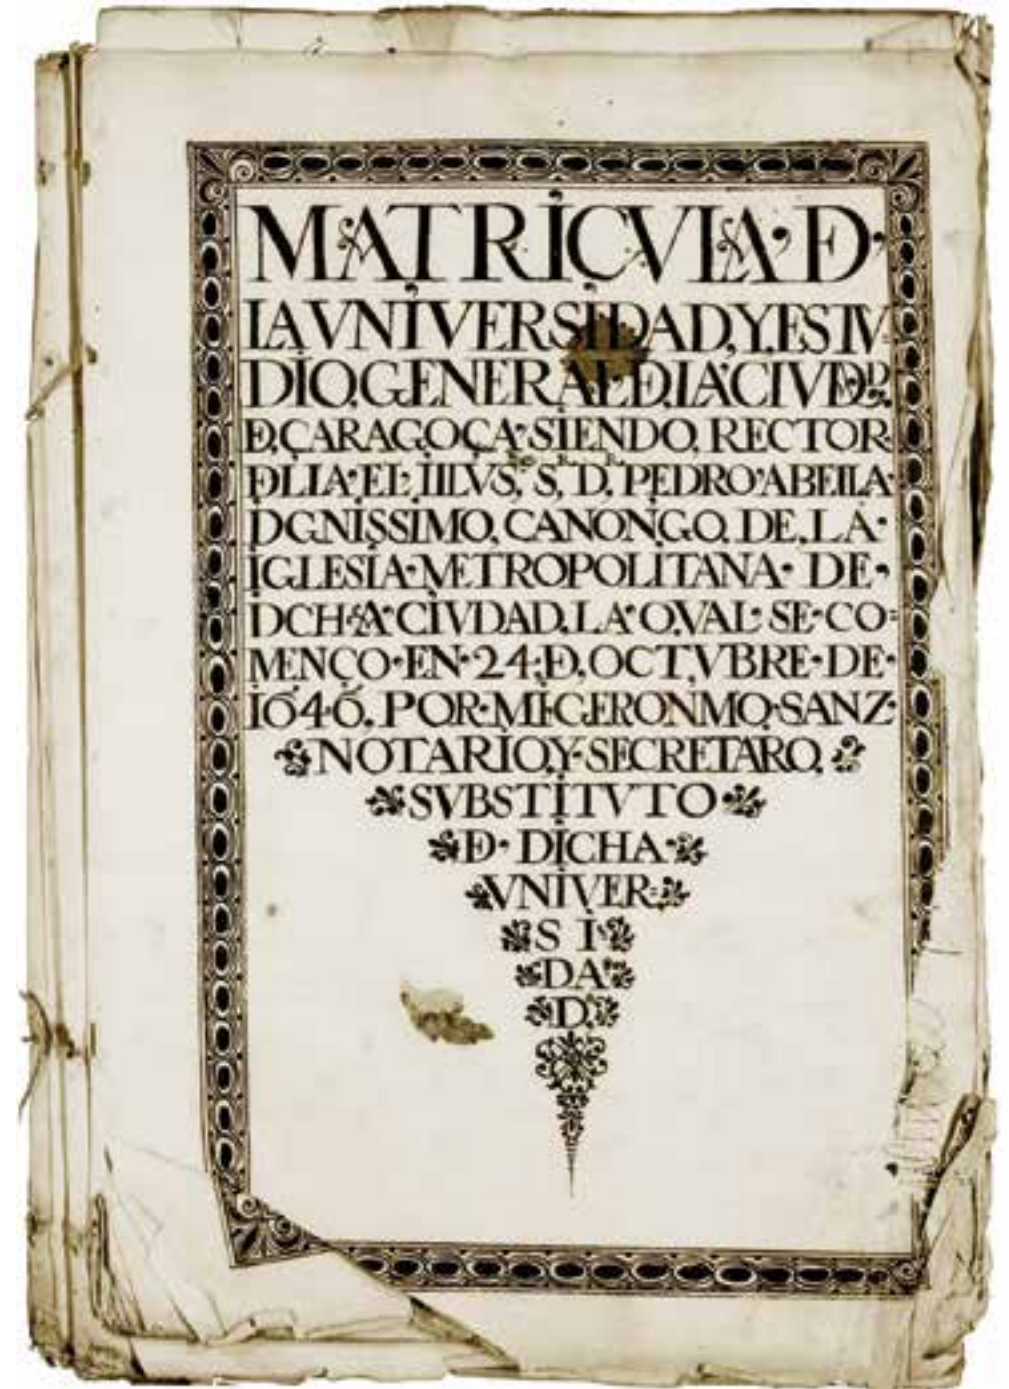 MATRICVLA· Đ·
LA VNIVERSIDAD, Y, ESTV=
DIO, GENERAL, Đ, LA CIVDD,
Đ, ÇARAGOÇA· SIENDO, RECTOR
ĐLLA· EL· ILLVS, S, D, PEDRO ABELLA·
DGNISSIMO, CANONGO, DE, LA·
IGLESIA· METROPOLITANA· DE·
DCHA· CIVDAD, LA· QVAL· SE·CO=
MENÇO·EN·24·Đ, OCTVBRE·DE·
1646, POR·MI·GERONMO·SANZ·
NOTARIO, Y·SECRETARO,
SVBSTITVTO
Đ· DICHA·
VNIVER=
SI
DA
D,